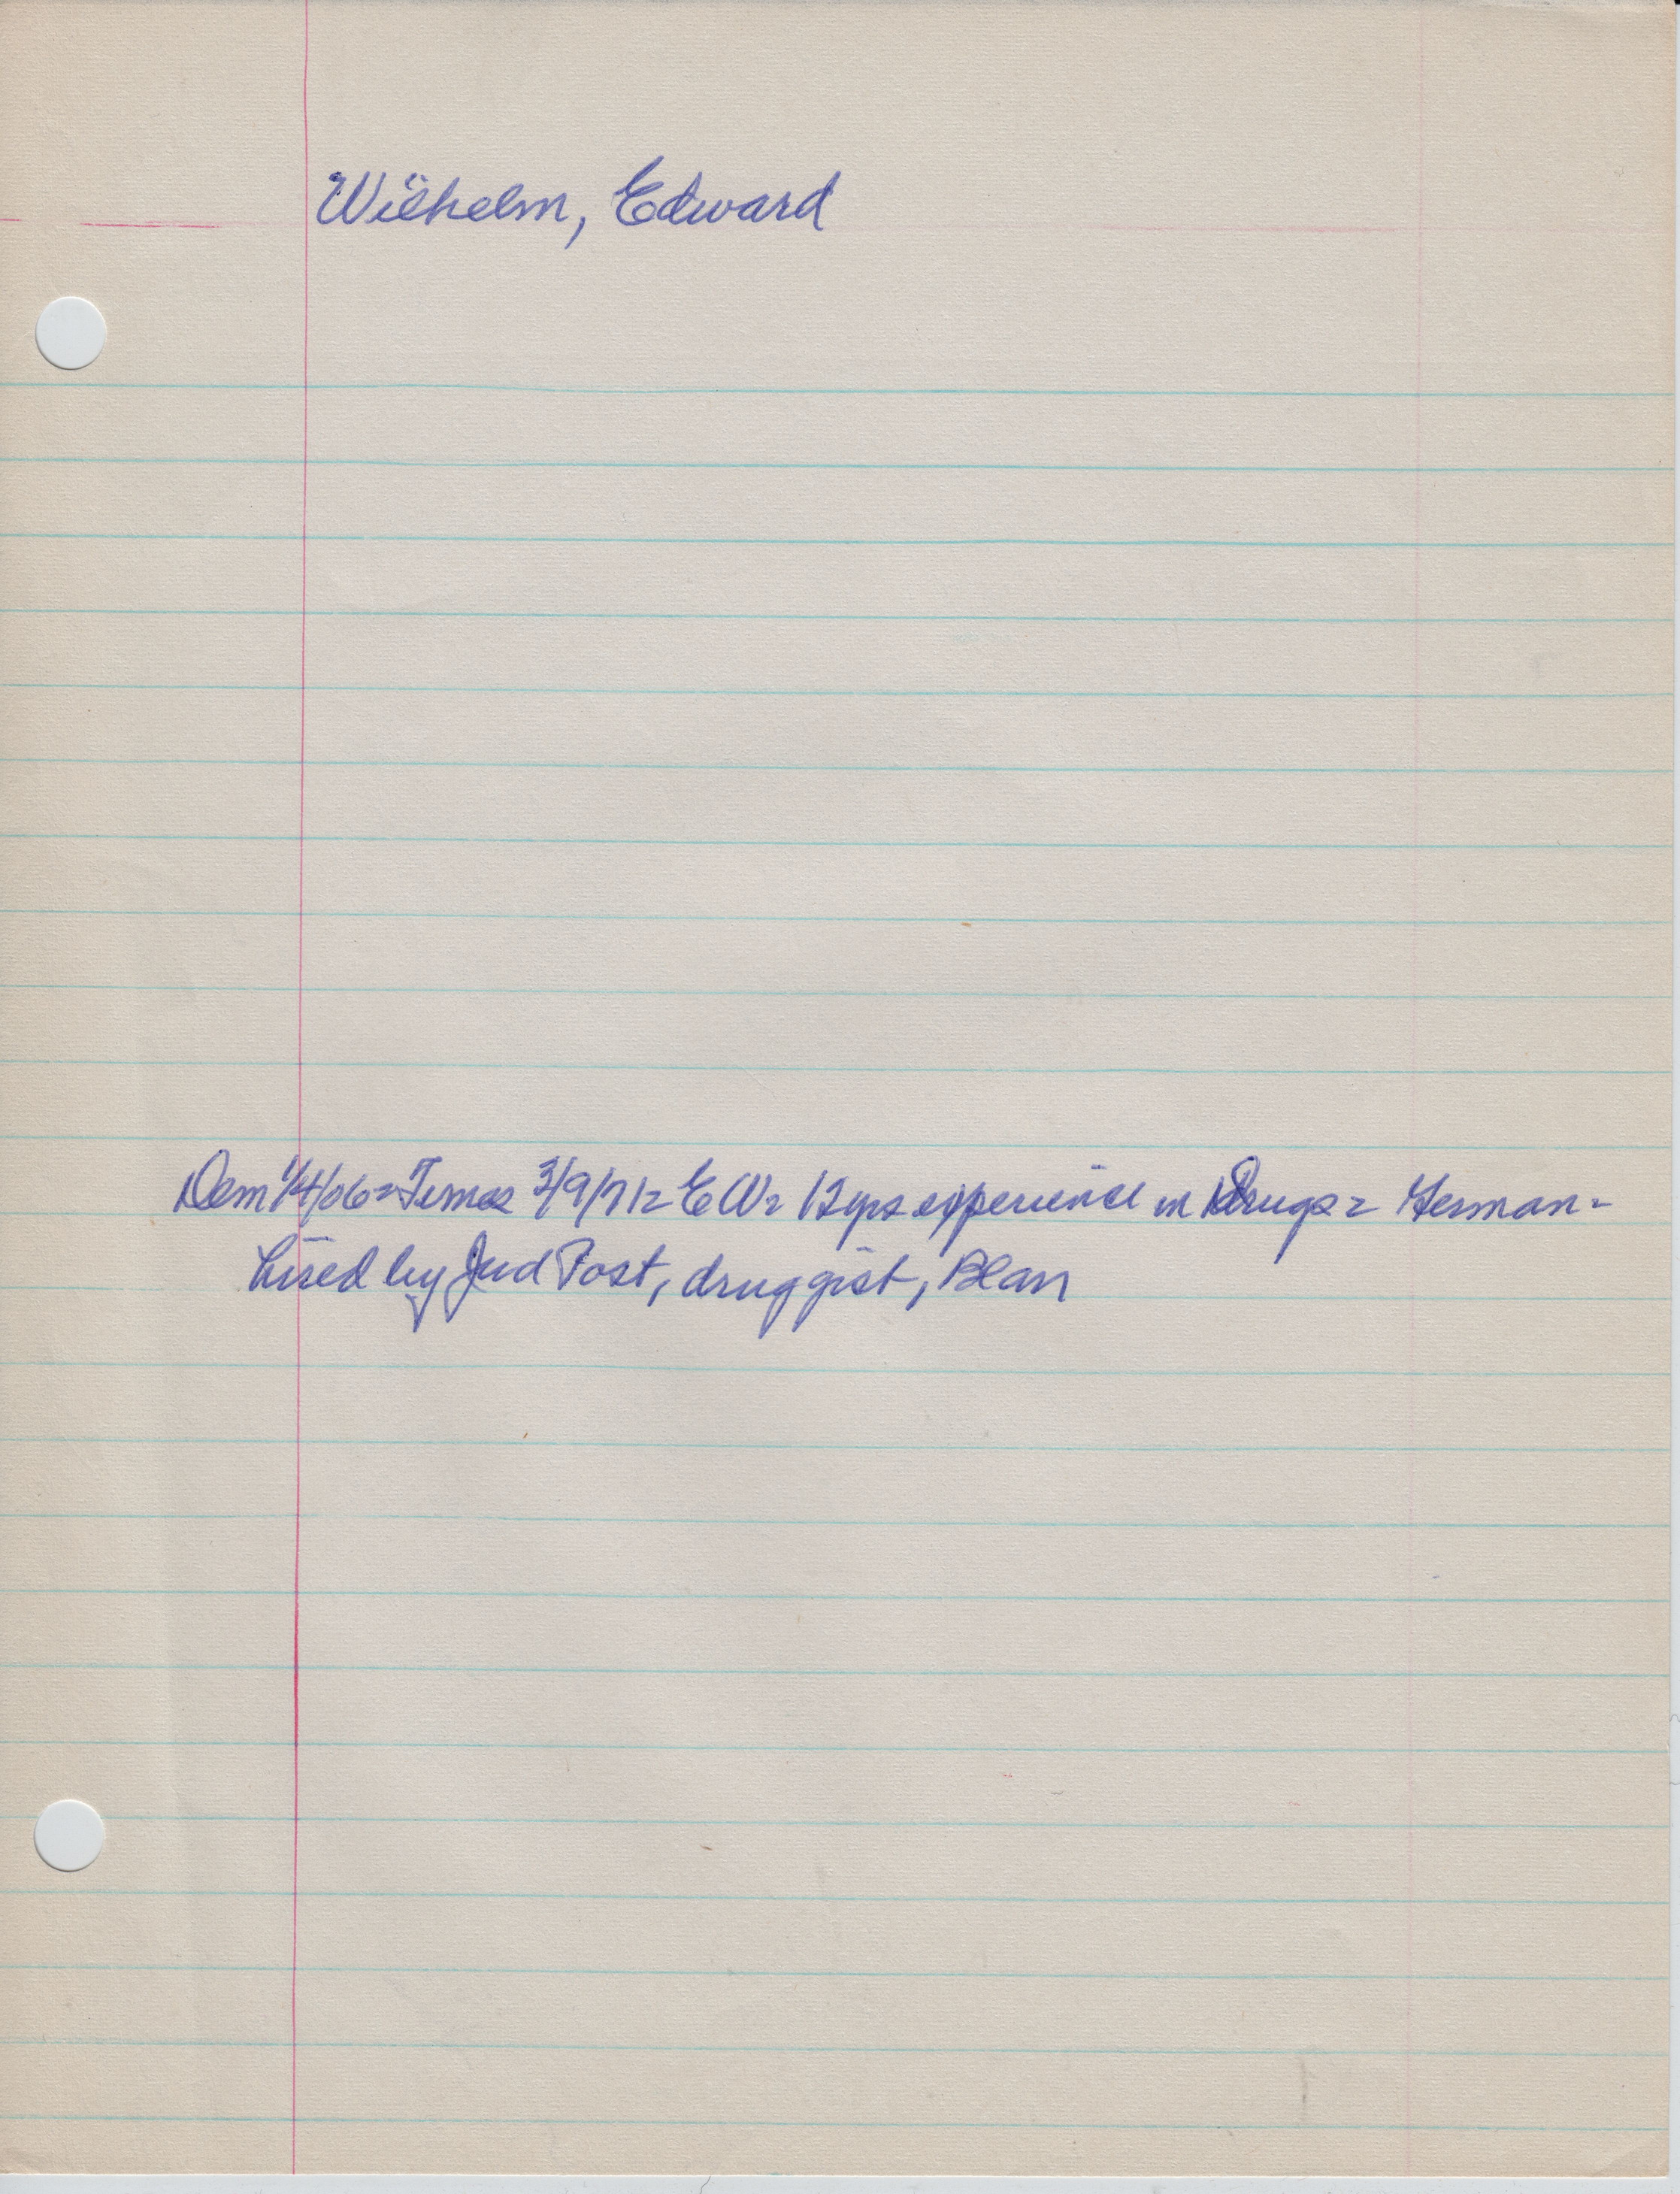 Wilhelm, Edward
Dem 1/4/06 = Times 3/9/71 = E W = 12 yrs experience in Drugs = German =
hired by Jud Post, druggist, Blan